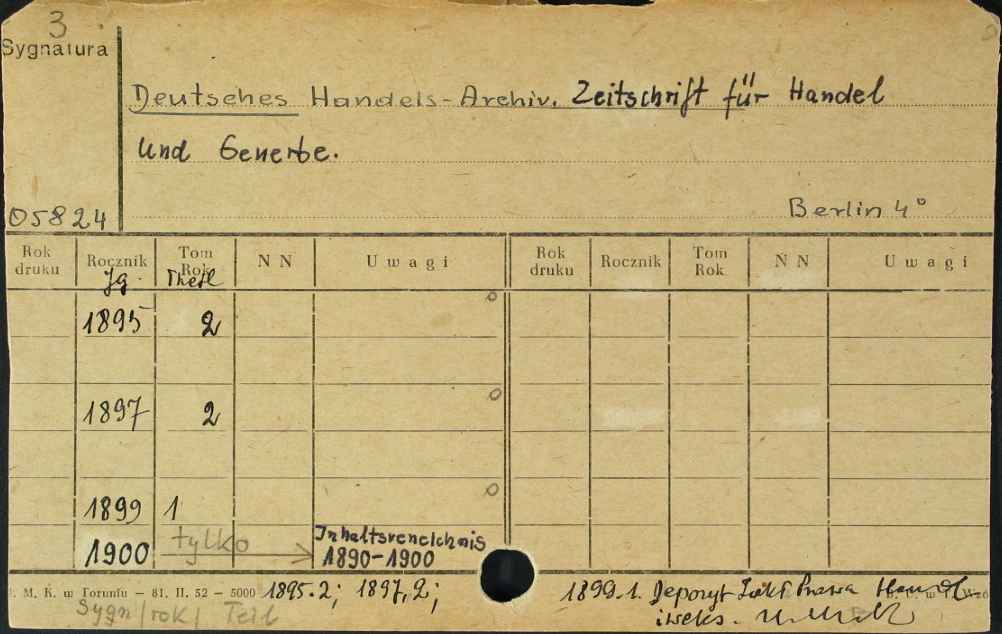 3
Sygnatura
Deutsches Handels-Archiv. Zeitschrift für Handel
und Gewerbe.
05824
Berlin 4°
Rok druku Rocznik Tom Rok N N Uwagi Rok druku Rocznik Tom Rok N N Uwagi
Jg. Theil
1895 2
1897 2
1899 1
1900 tylko Inhaltsverzeichnis
1890-1900
M. K. w Toruniu — 81. II. 52 - 5000 1895.2; 1897,2; 1899.1. Depozyt Zakł Prawa Handl
Sygn/rok/ Teil iweks.